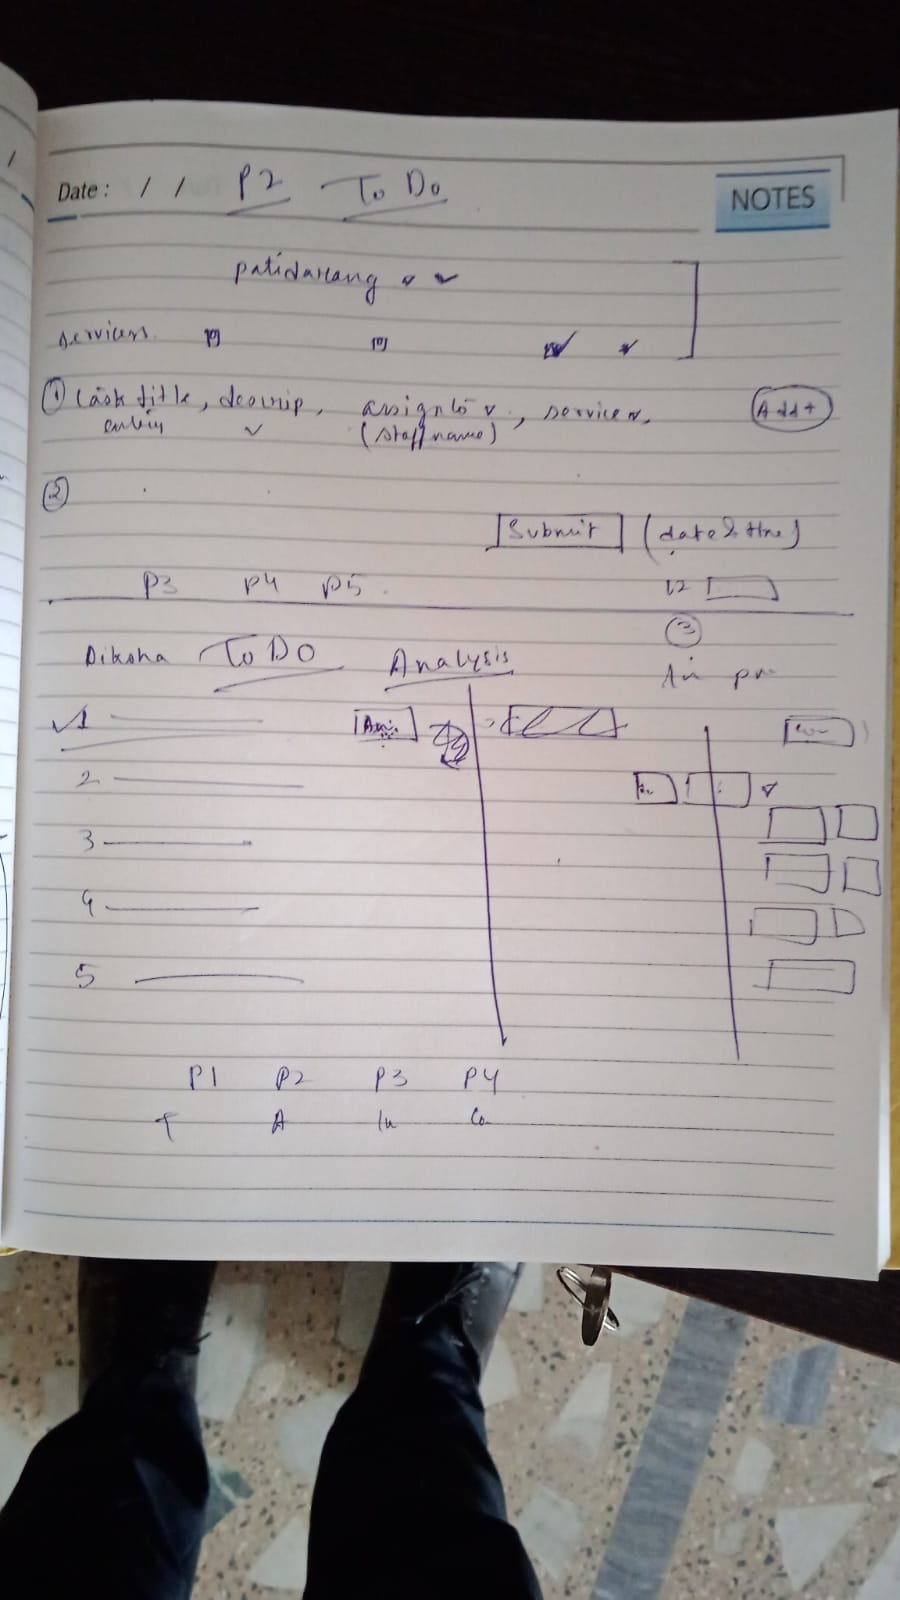 Date: / / P2 To Do NOTES
services.
① task title, descrip, assign to, service, Add+
(staff name)
②
Submit (date & time)
P3 P4 P5
③
Diksha To Do Analysis
1
2
3
4
5
P1 P2 P3 P4
T A In Co